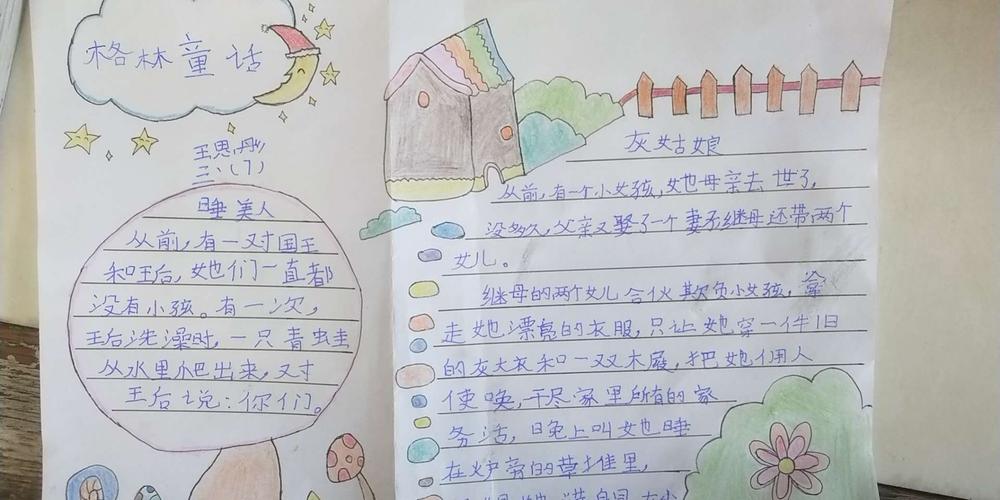 格林童话
王思彤
三、(7)
睡美人
从前，有一对国王
和王后，她们一直都
没有小孩。有一次，
王后洗澡时，一只青蛙
从水里爬出来，对
王后说：你们。
灰姑娘
从前，有一个小女孩，她母亲去世了，
没多久，父亲又娶了一个妻子继母还带两个
女儿。
继母的两个女儿合伙欺负小女孩，拿
走她漂亮的衣服，只让她穿一件旧
的灰大衣和一双木屐，把她佣人
使唤，干尽家里所有的家
务活，晚上叫她睡
在炉旁的草堆里，